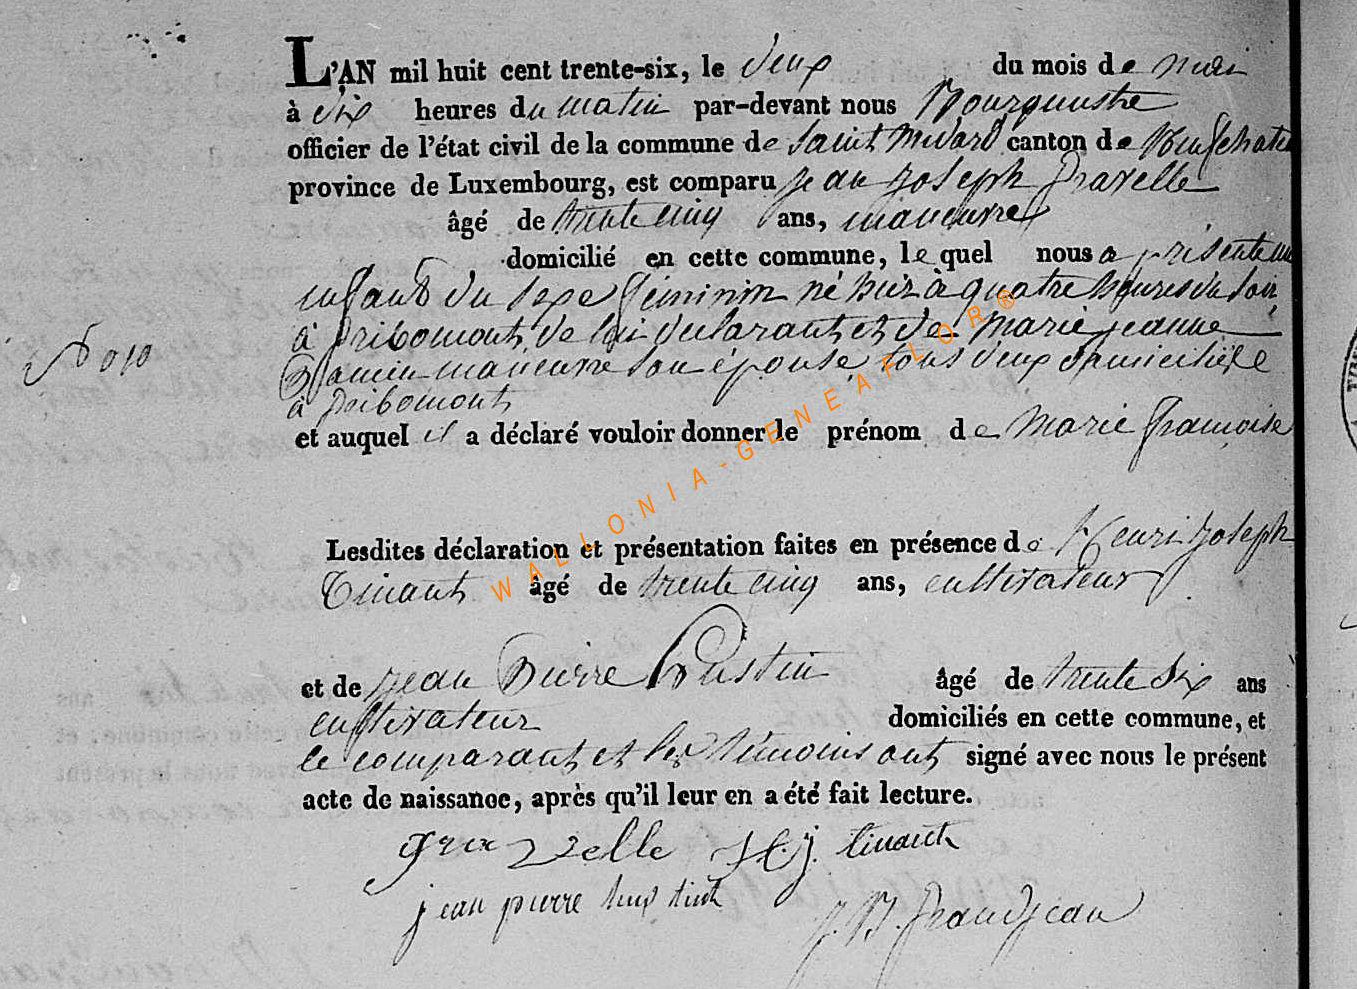 L'AN mil huit cent trente-six, le deux du mois de mai
à dix heures du matin par-devant nous Bourgmestre
officier de l'état civil de la commune de Saint Médard canton de Neufchateau
province de Luxembourg, est comparu jean joseph
âgé de trente cinq ans, manœuvre
domicilié en cette commune, lequel nous a présenté un
enfant du sexe féminin né hier à quatre heures du soir
à pribomont, de lui déclarant et de Marie jeanne
manœuvre son épouse, tous deux domiciliée
à pribomont
et auquel il a déclaré vouloir donner le prénom de Marie françoise
Lesdites déclaration et présentation faites en présence de Henri joseph
Tinant âgé de trente cinq ans, cultivateur
et de jean Pierre Hustin âgé de trente six ans
cultivateur domiciliés en cette commune, et
le comparant et les témoins ont signé avec nous le présent
acte de naissance, après qu'il leur en a été fait lecture.
H. j. tinant
jean pierre
J. B. grandjean
WALLONIA-GENEAFLOR®